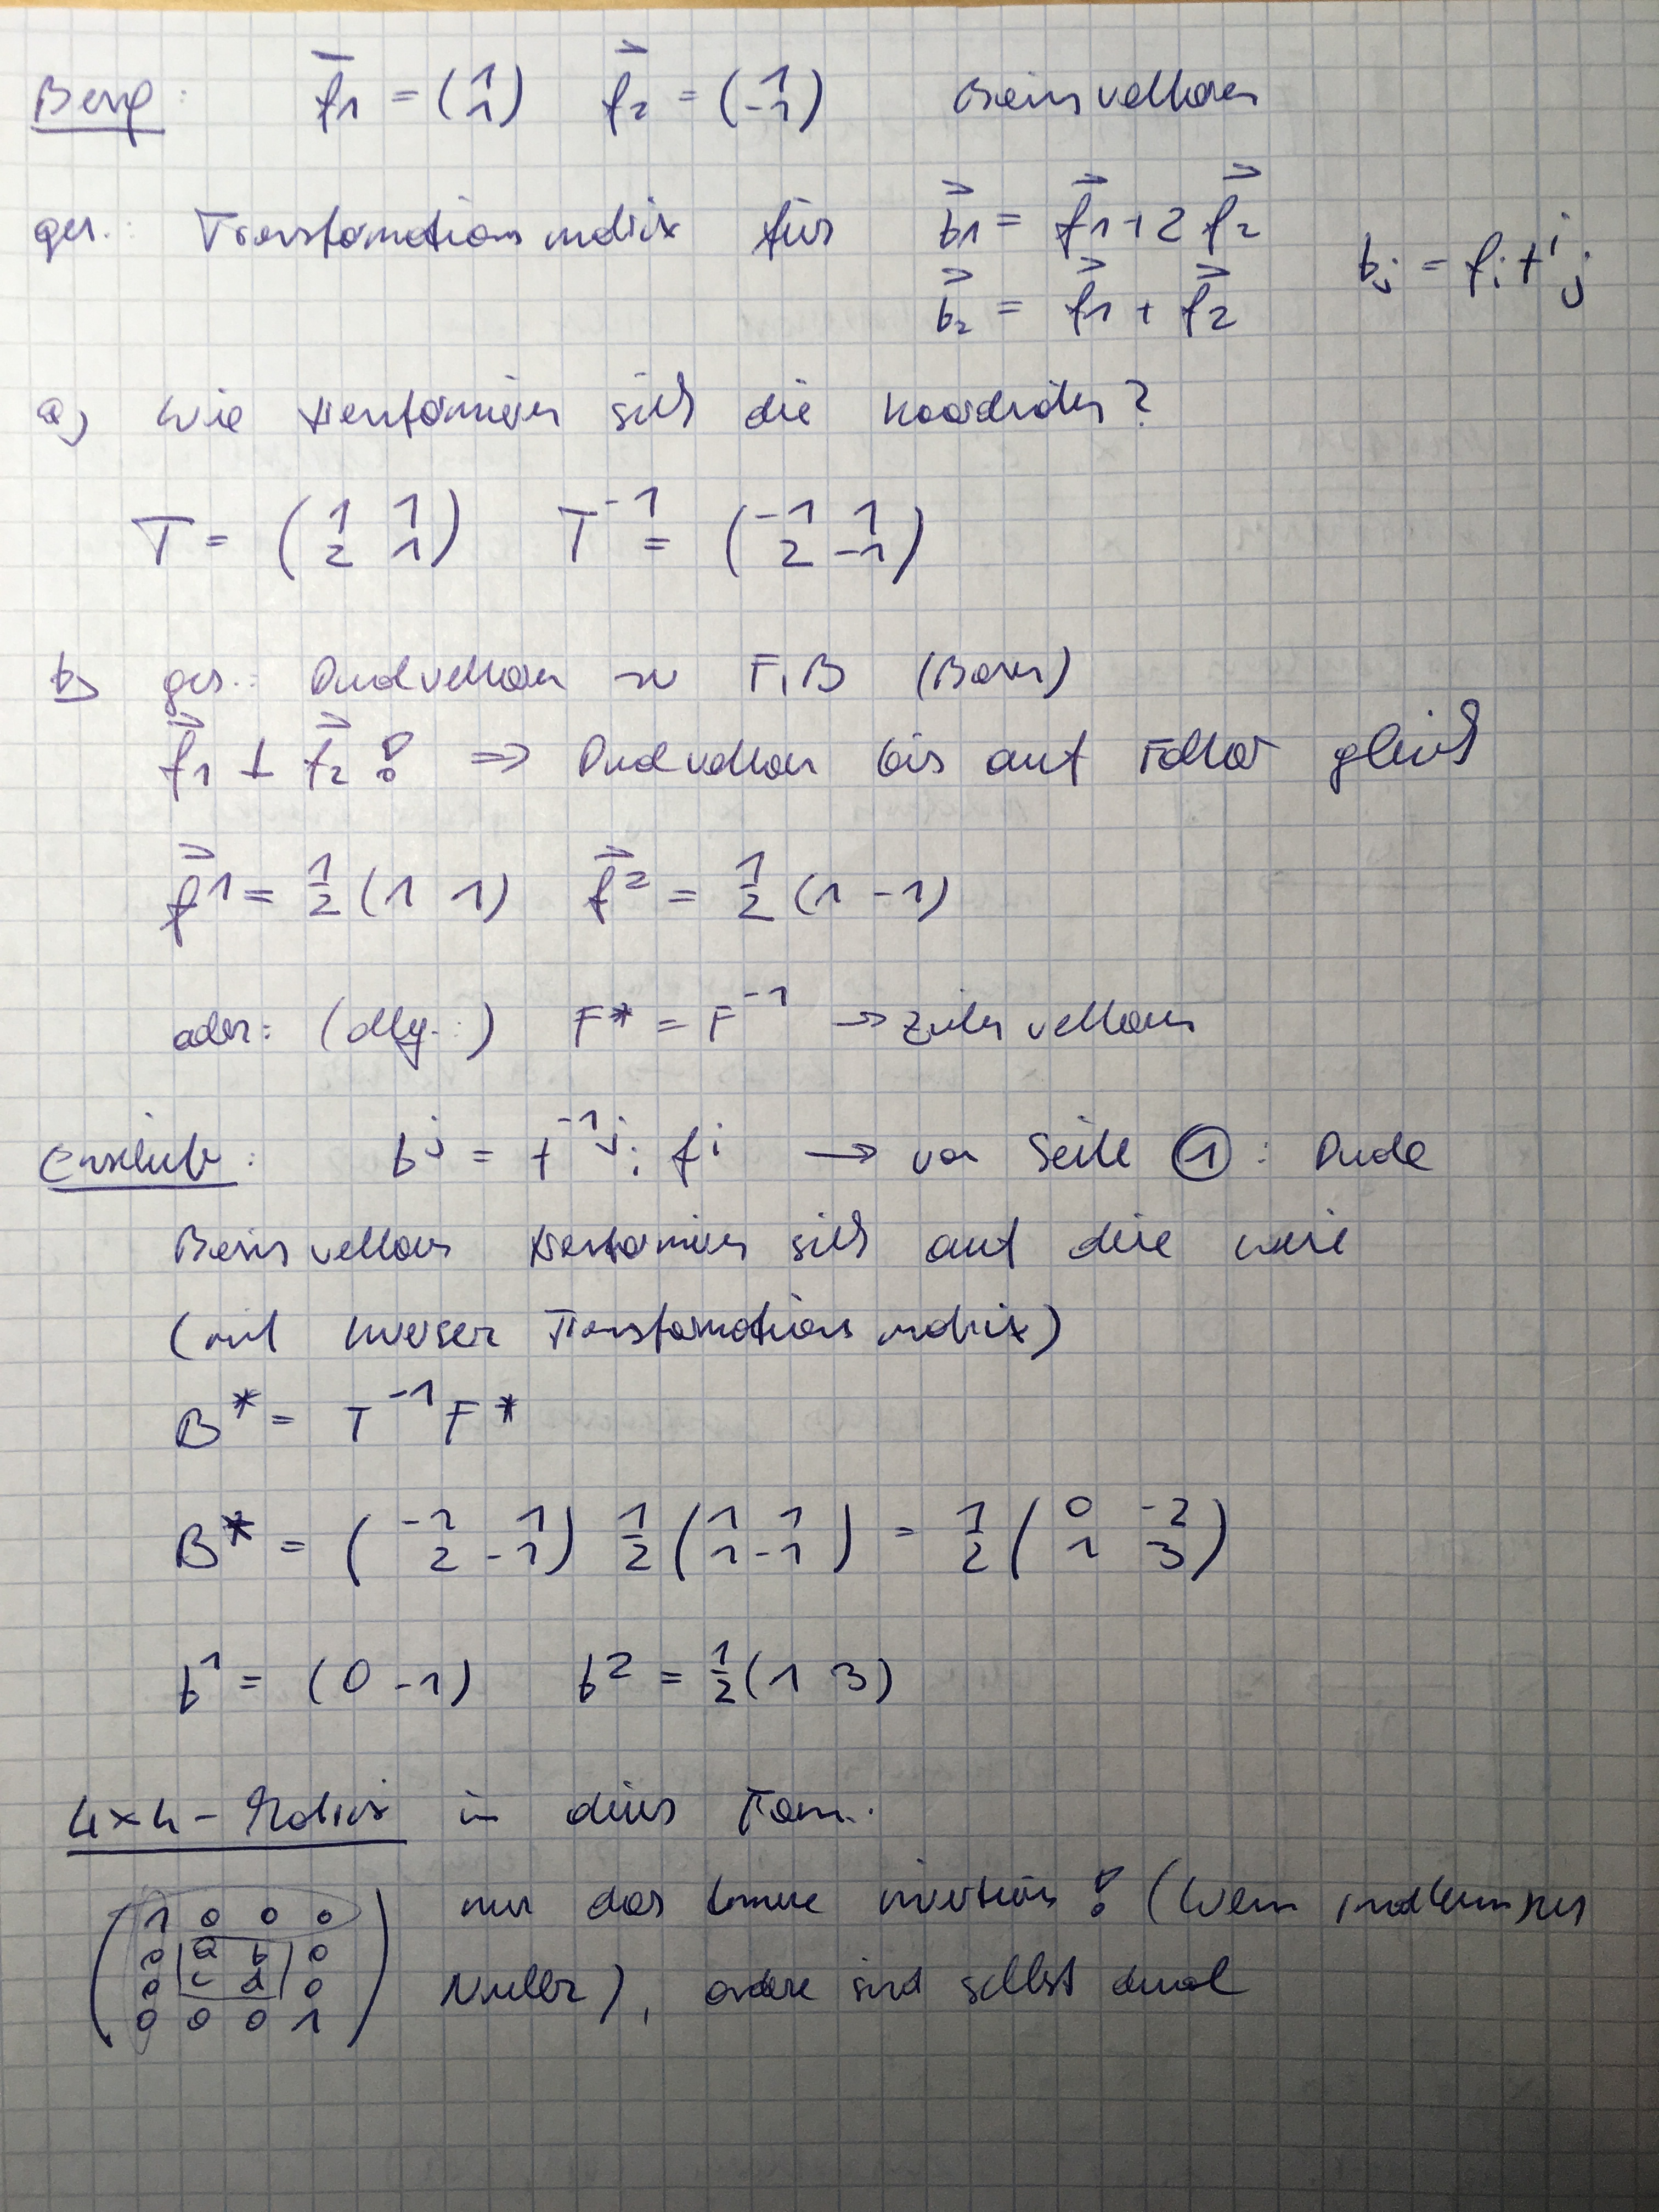 Bsp: f⃗1 = (1 1) f⃗2 = (1 -1) Basisvektoren
ges.: Transformationsmatrix für b⃗1 = f⃗1 + 2 f⃗2
b⃗2 = f⃗1 + f⃗2 bj = fi t^i_j
a) Wie transformieren sich die Koordinaten?
T = (1 1 / 2 1) T^-1 = (-1 1 / 2 -1)
b) ges.: Dualvektoren zu F, B (Basen)
f⃗1 ⊥ f⃗2 ! => Dualvektoren bis auf Faktor gleich
f⃗^1 = 1/2 (1 1) f⃗^2 = 1/2 (1 -1)
oder: (allg.:) F* = F^-1 → Zeilenvektoren
b^j = t^-1 j_i f^i → von Seite ①: Duale
Basisvektoren transformieren sich auf diese Weise
(mit inverser Transformationsmatrix)
B* = T^-1 F*
B* = (-1 1 / 2 -1) 1/2 (1 1 / 1 -1) = 1/2 (0 -2 / 1 3)
b^1 = (0 -1) b^2 = 1/2 (1 3)
4x4 - Matrix in dieser Form:
(1 0 0 0 / 0 a b 0 / 0 c d 0 / 0 0 0 1) nur das Innere invertieren! (Wenn
Nullen), andere sind selbst dual